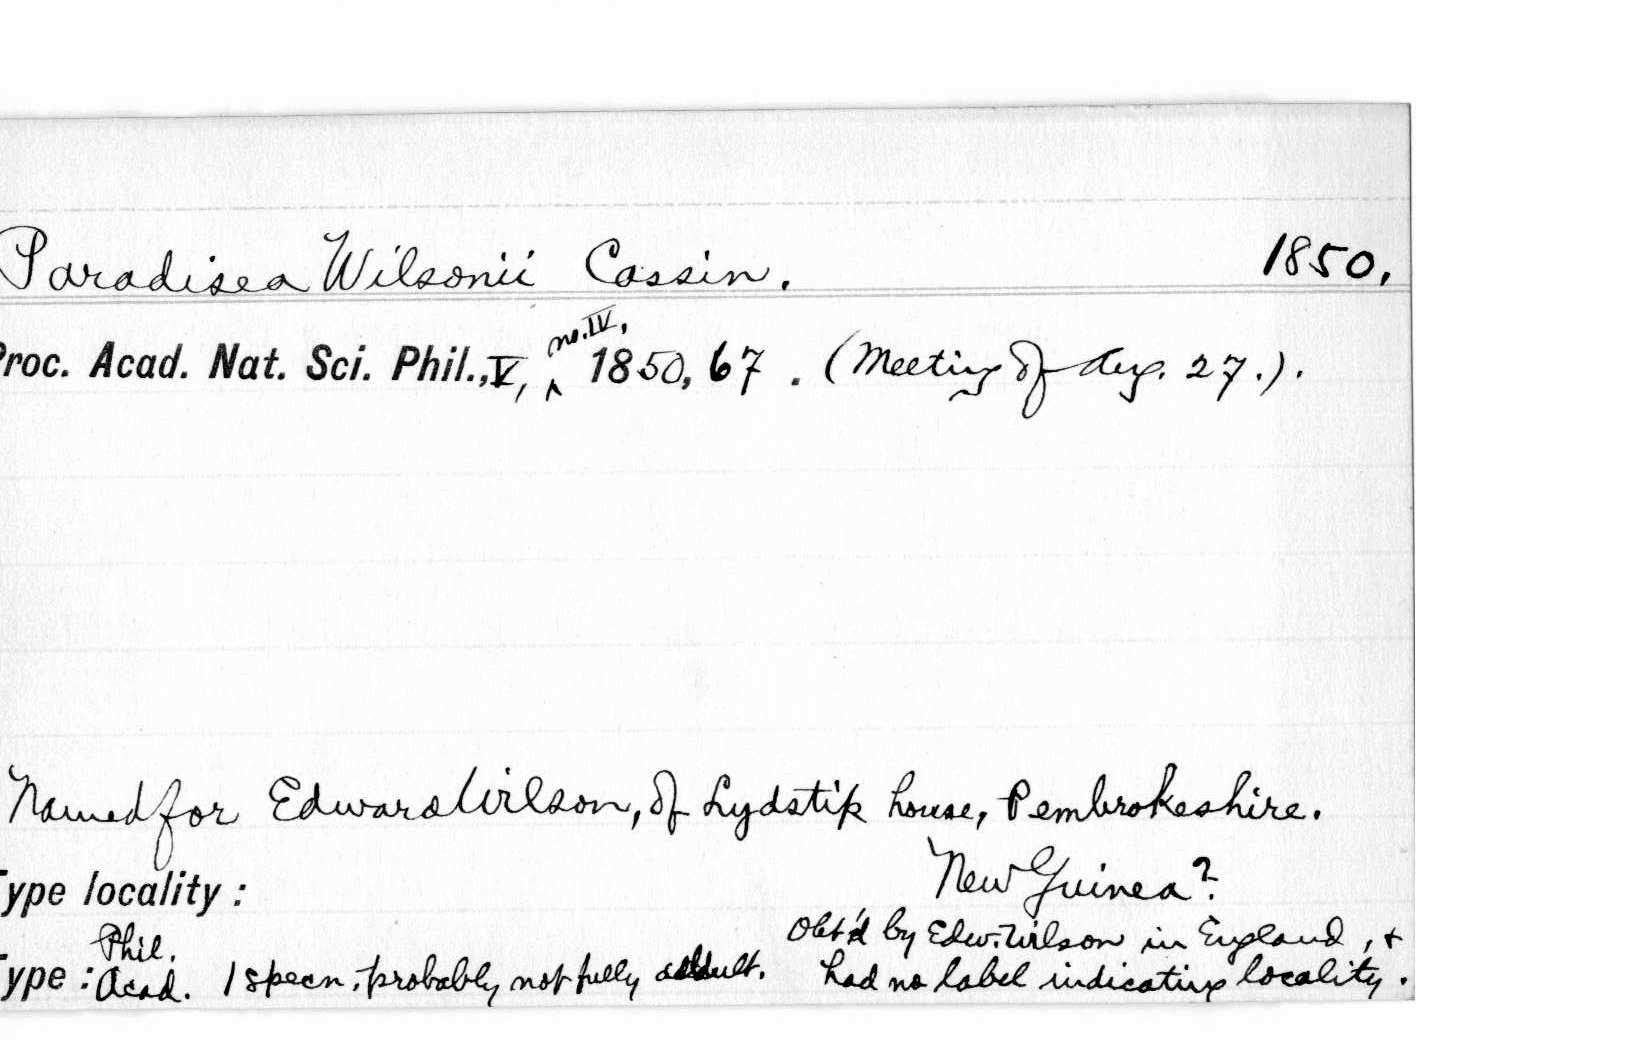 Paradisea Wilsonii Cassin. 1850.
Proc. Acad. Nat. Sci. Phil., V, no. IV, 1850, 67. (Meeting of Aug. 27.).
Named for Edward Wilson, of Lydstip house, Pembrokeshire.
Type locality: New Guinea?
Phil. Obt'd by Edw. Wilson in England, &
Type: Acad. 1 specn, probably not fully adult. had no label indicating locality.